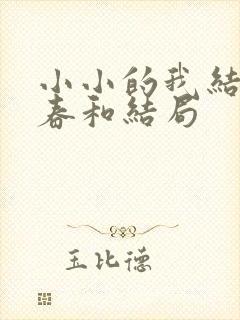 小小的我結
春和結局
玉比德